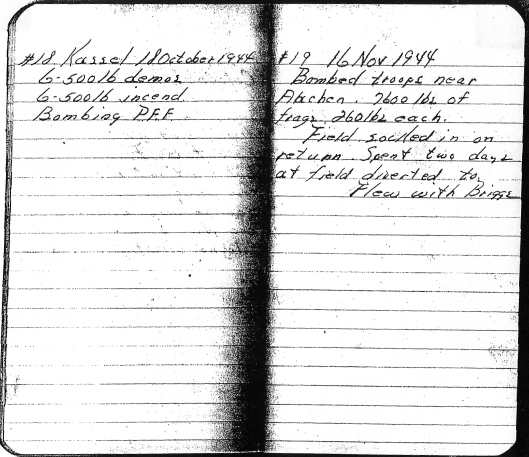 #18 Kassel 18 October 1944
6-500lb demos
6-500lb incend.
Bombing P.F.F.
#19 16 Nov 1944
Bombed troops near
Aachen. 2600 lbs of
frags 260lbs each.
Field socked in on
return. Spent two days
at field diverted to.
Flew with Briggs